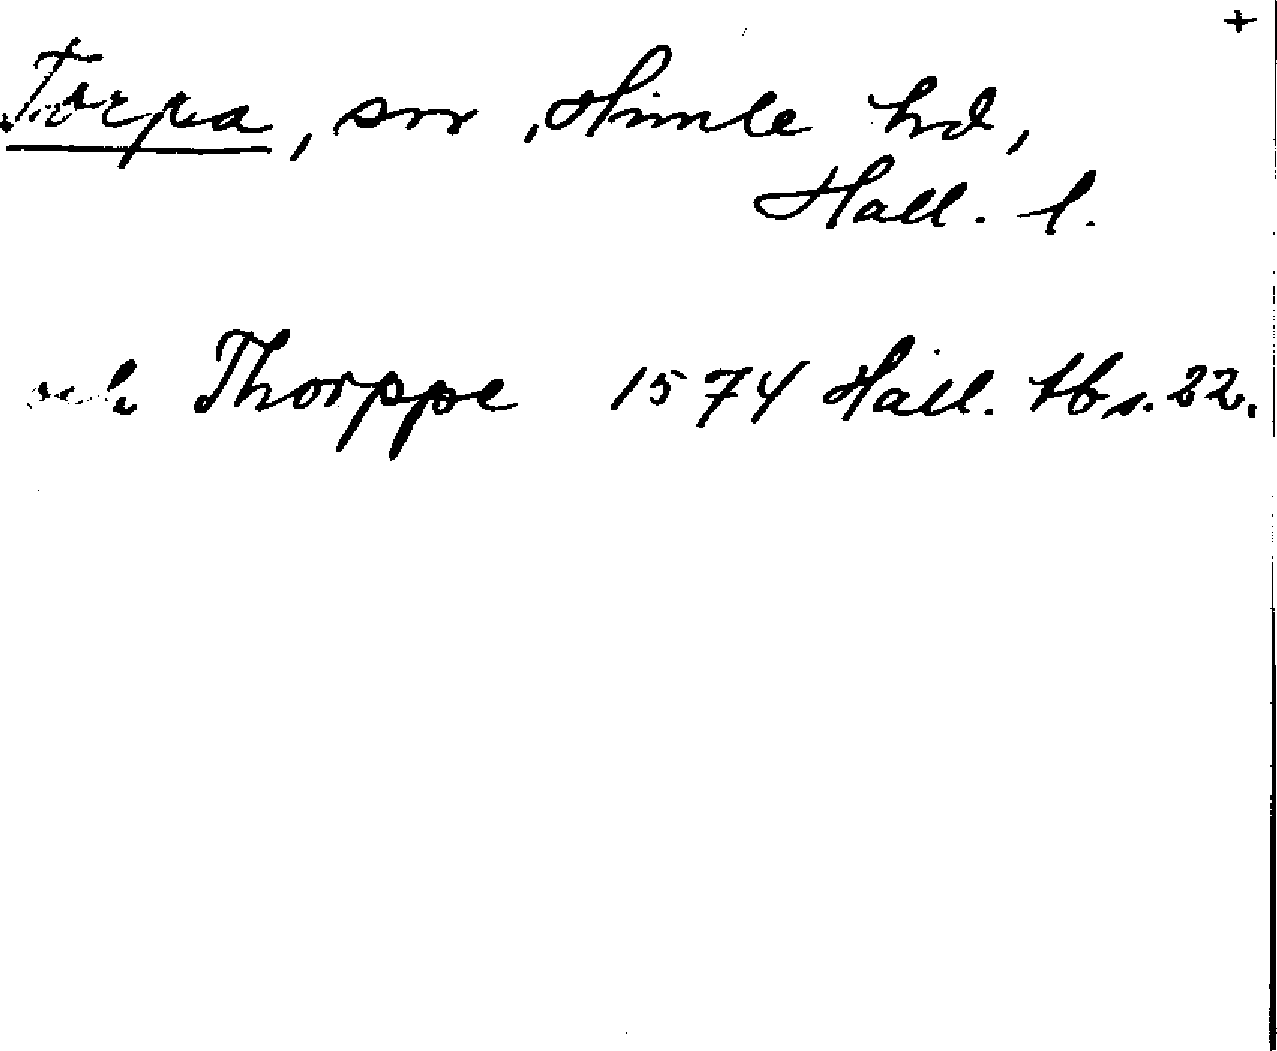 +
Torpa, snr, Himle hrd,
Hall. l.
och Thorppe 1574 Hall. tb s. 22.